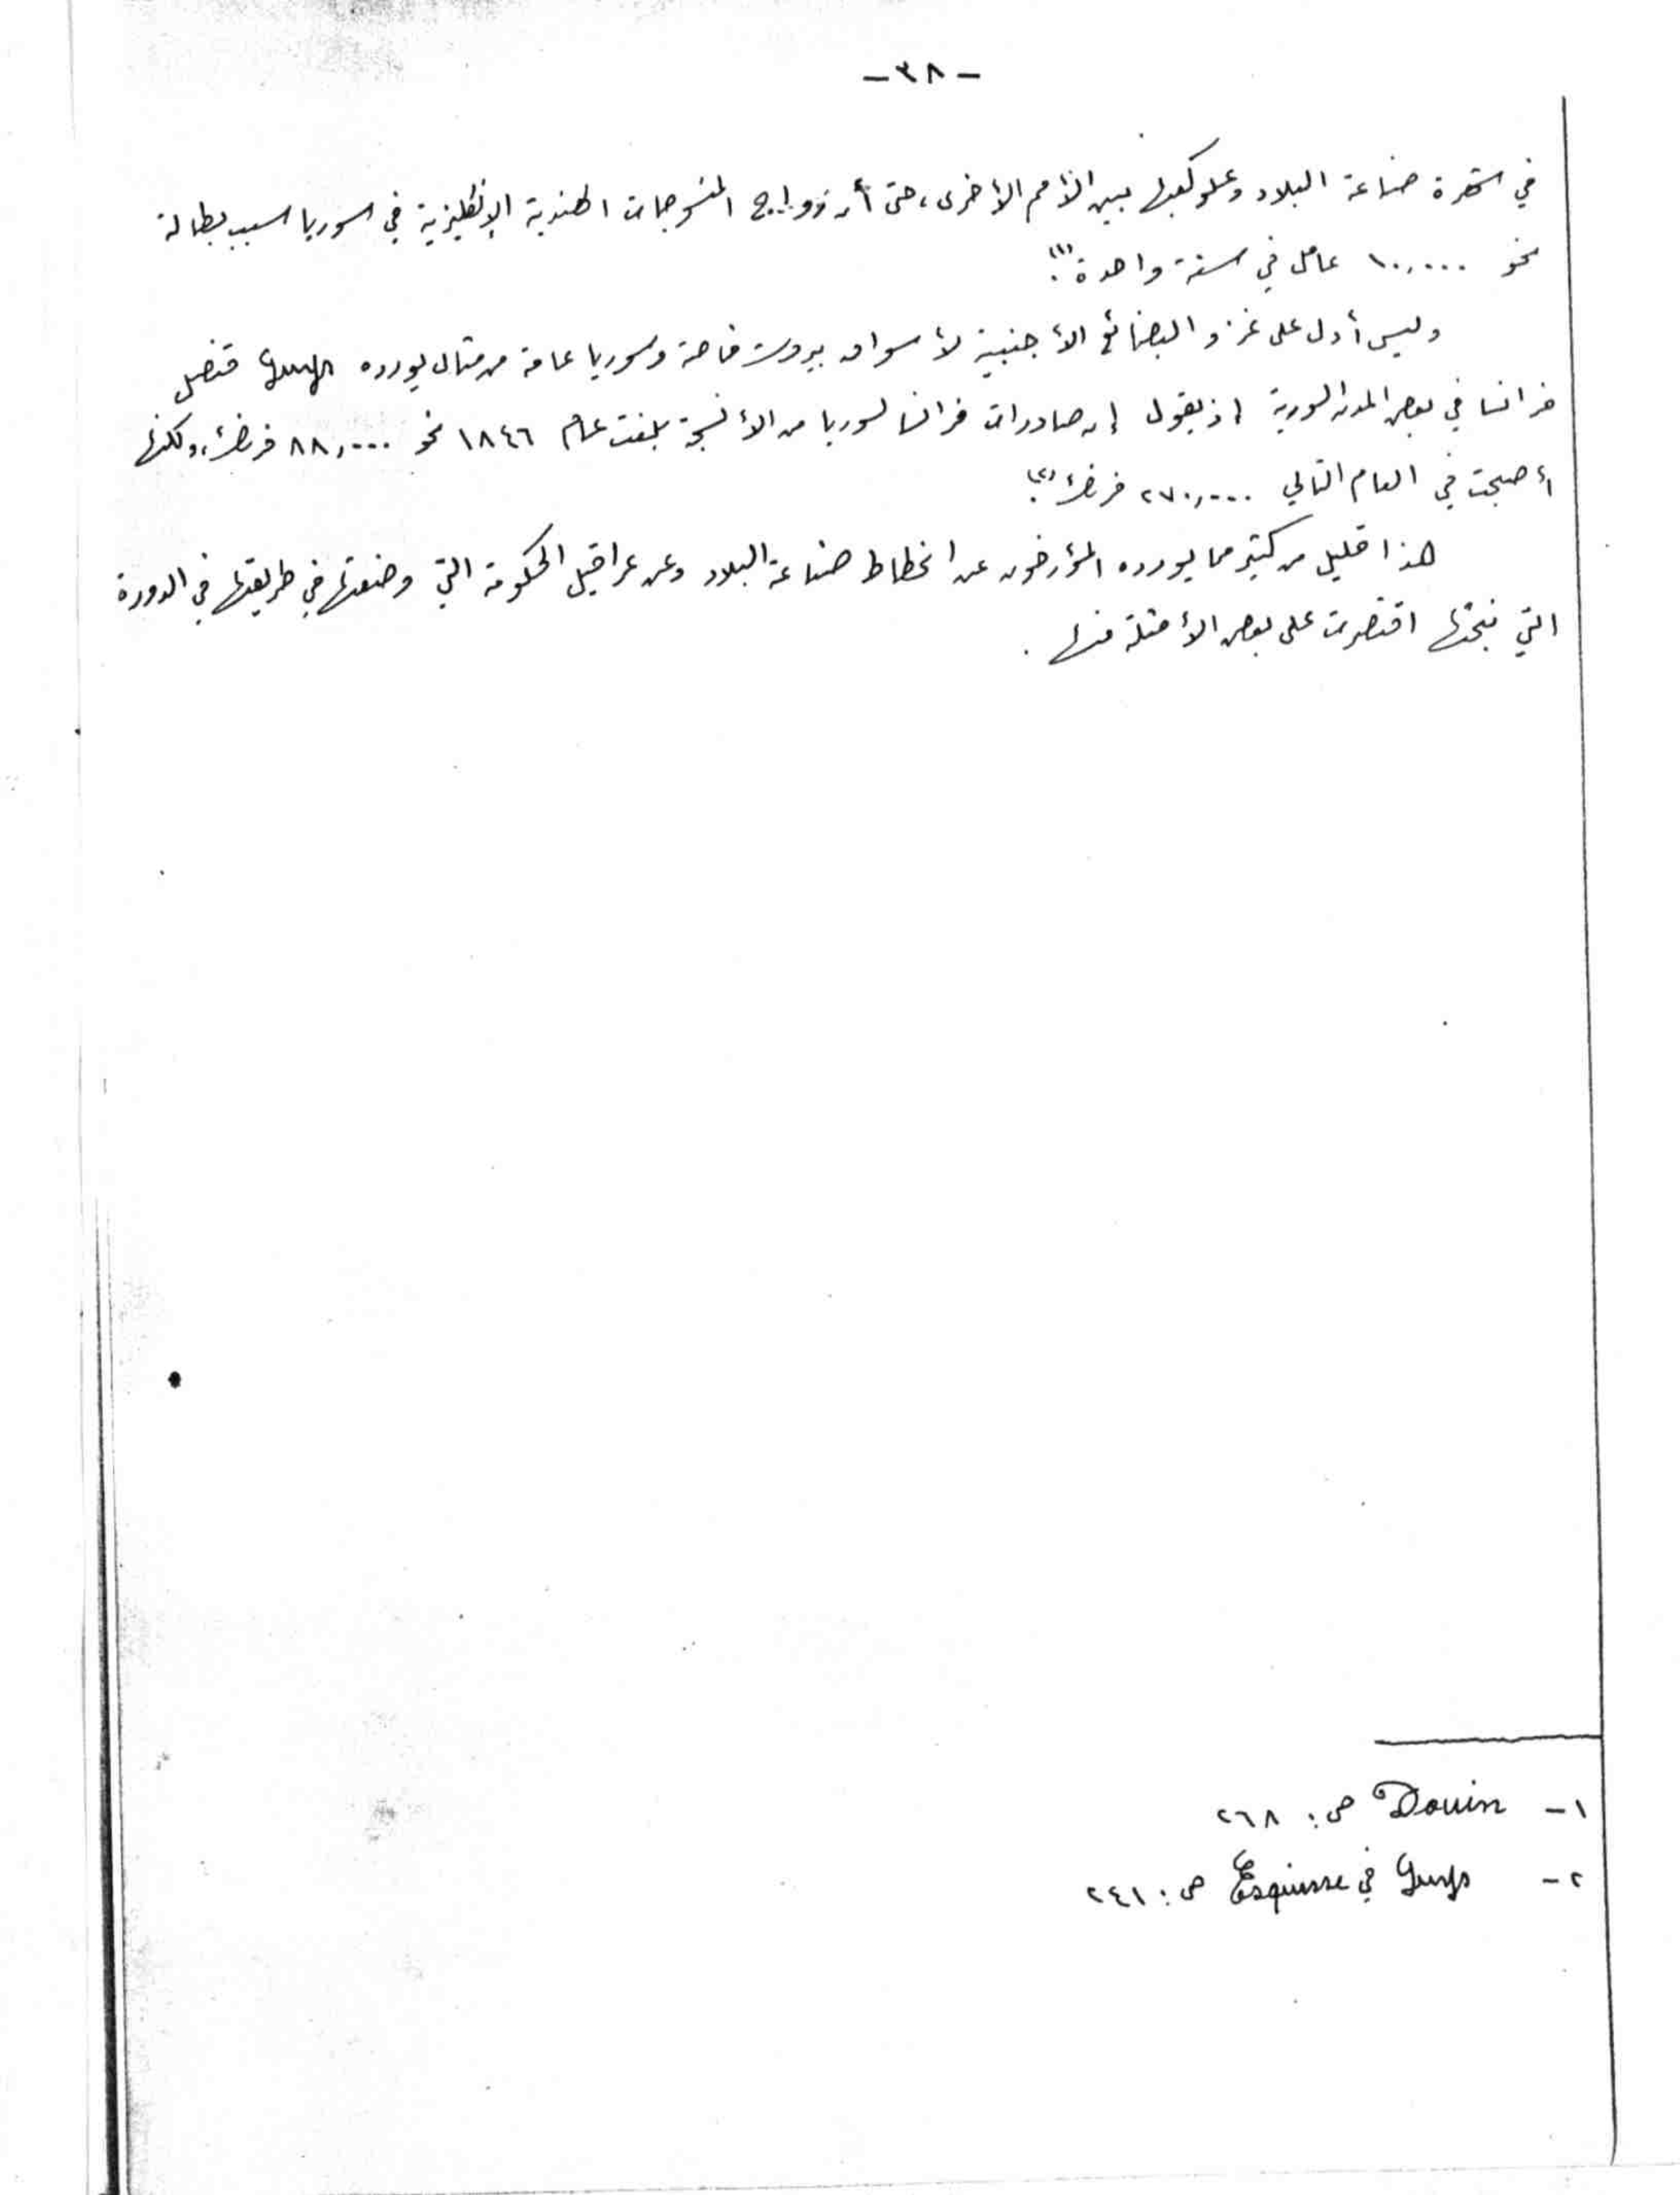 -٣٨-
في شهرة صناعة البلاد وعلو كعبها بين الأمم الأخرى، حتى أن رواج المنسوجات الهندية الإنكليزية في سوريا سبب بطالة
نحو ١٠,٠٠٠ عامل في سنة واحدة (١).
وليس أدل على غزو البضائع الأجنبية لأسواق بيروت خاصة وسوريا عامة من مثال يورده Guys قنصل
فرانسا في بعض المدن السورية إذ يقول إن صادرات فرانسا لسوريا من الأنسجة بلغت عام ١٨٤٦ نحو ٨٨,٠٠٠ فرنك، ولكنها
أصبحت في العام التالي ٢٧٠,٠٠٠ فرنك (٢).
هذا قليل من كثير مما يورده المؤرخون عن انحطاط صناعة البلاد وعن عراقيل الحكومة التي وضعتها في طريقها في الدورة
التي نبحثها اقتصرت على بعض الأمثلة منها.
١- Douin ص: ٢٦٨
٢- Guys في Esquisse ص: ٢٤١